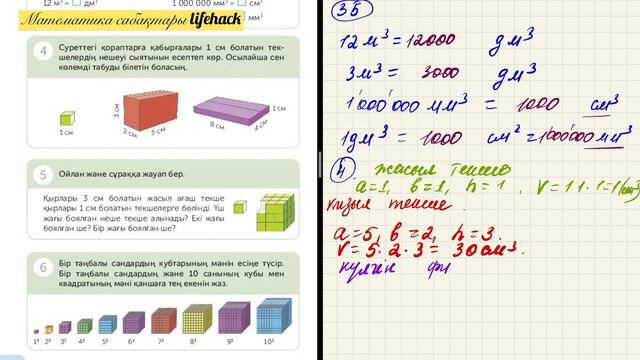 12 м³ = дм³
1 000 000 мм³ = см³
мм³
Математика сабақтары lifehack
4
Суреттегі қораптарға қабырғалары 1 см болатын тек-
шелердің нешеуі сыятынын есептеп көр. Осылайша сен
көлемді табуды білетін боласың.
1 см
3 см
2 см
5 см
8 см
4 см
1 см
5
Ойлан және сұраққа жауап бер.
Қырлары 3 см болатын жасыл ағаш текше
қырлары 1 см болатын текшелерге бөлінді. Үш
жағы боялған неше текше алынады? Екі жағы
боялған ше? Бір жағы боялған ше?
6
Бір таңбалы сандардың кубтарының мәнін есіңе түсір.
Бір таңбалы сандардың және 10 санының кубы мен
квадратының мәні қаншаға тең екенін жаз.
1³ 2³ 3³ 4³ 5³ 6³ 7³ 8³ 9³ 10³
35
12 м³ = 12000 дм³
3 м³ = 3000 дм³
1 000 000 мм³ = 1000 см³
1 дм³ = 1000 см² = 1000000 мм³
4 жасыл текше
a=1, в=1, h=1, V=1·1·1=1(см³)
қызыл текше
a=5, в=2, h=3.
V=5·2·3=30 см³.
күлгін фи